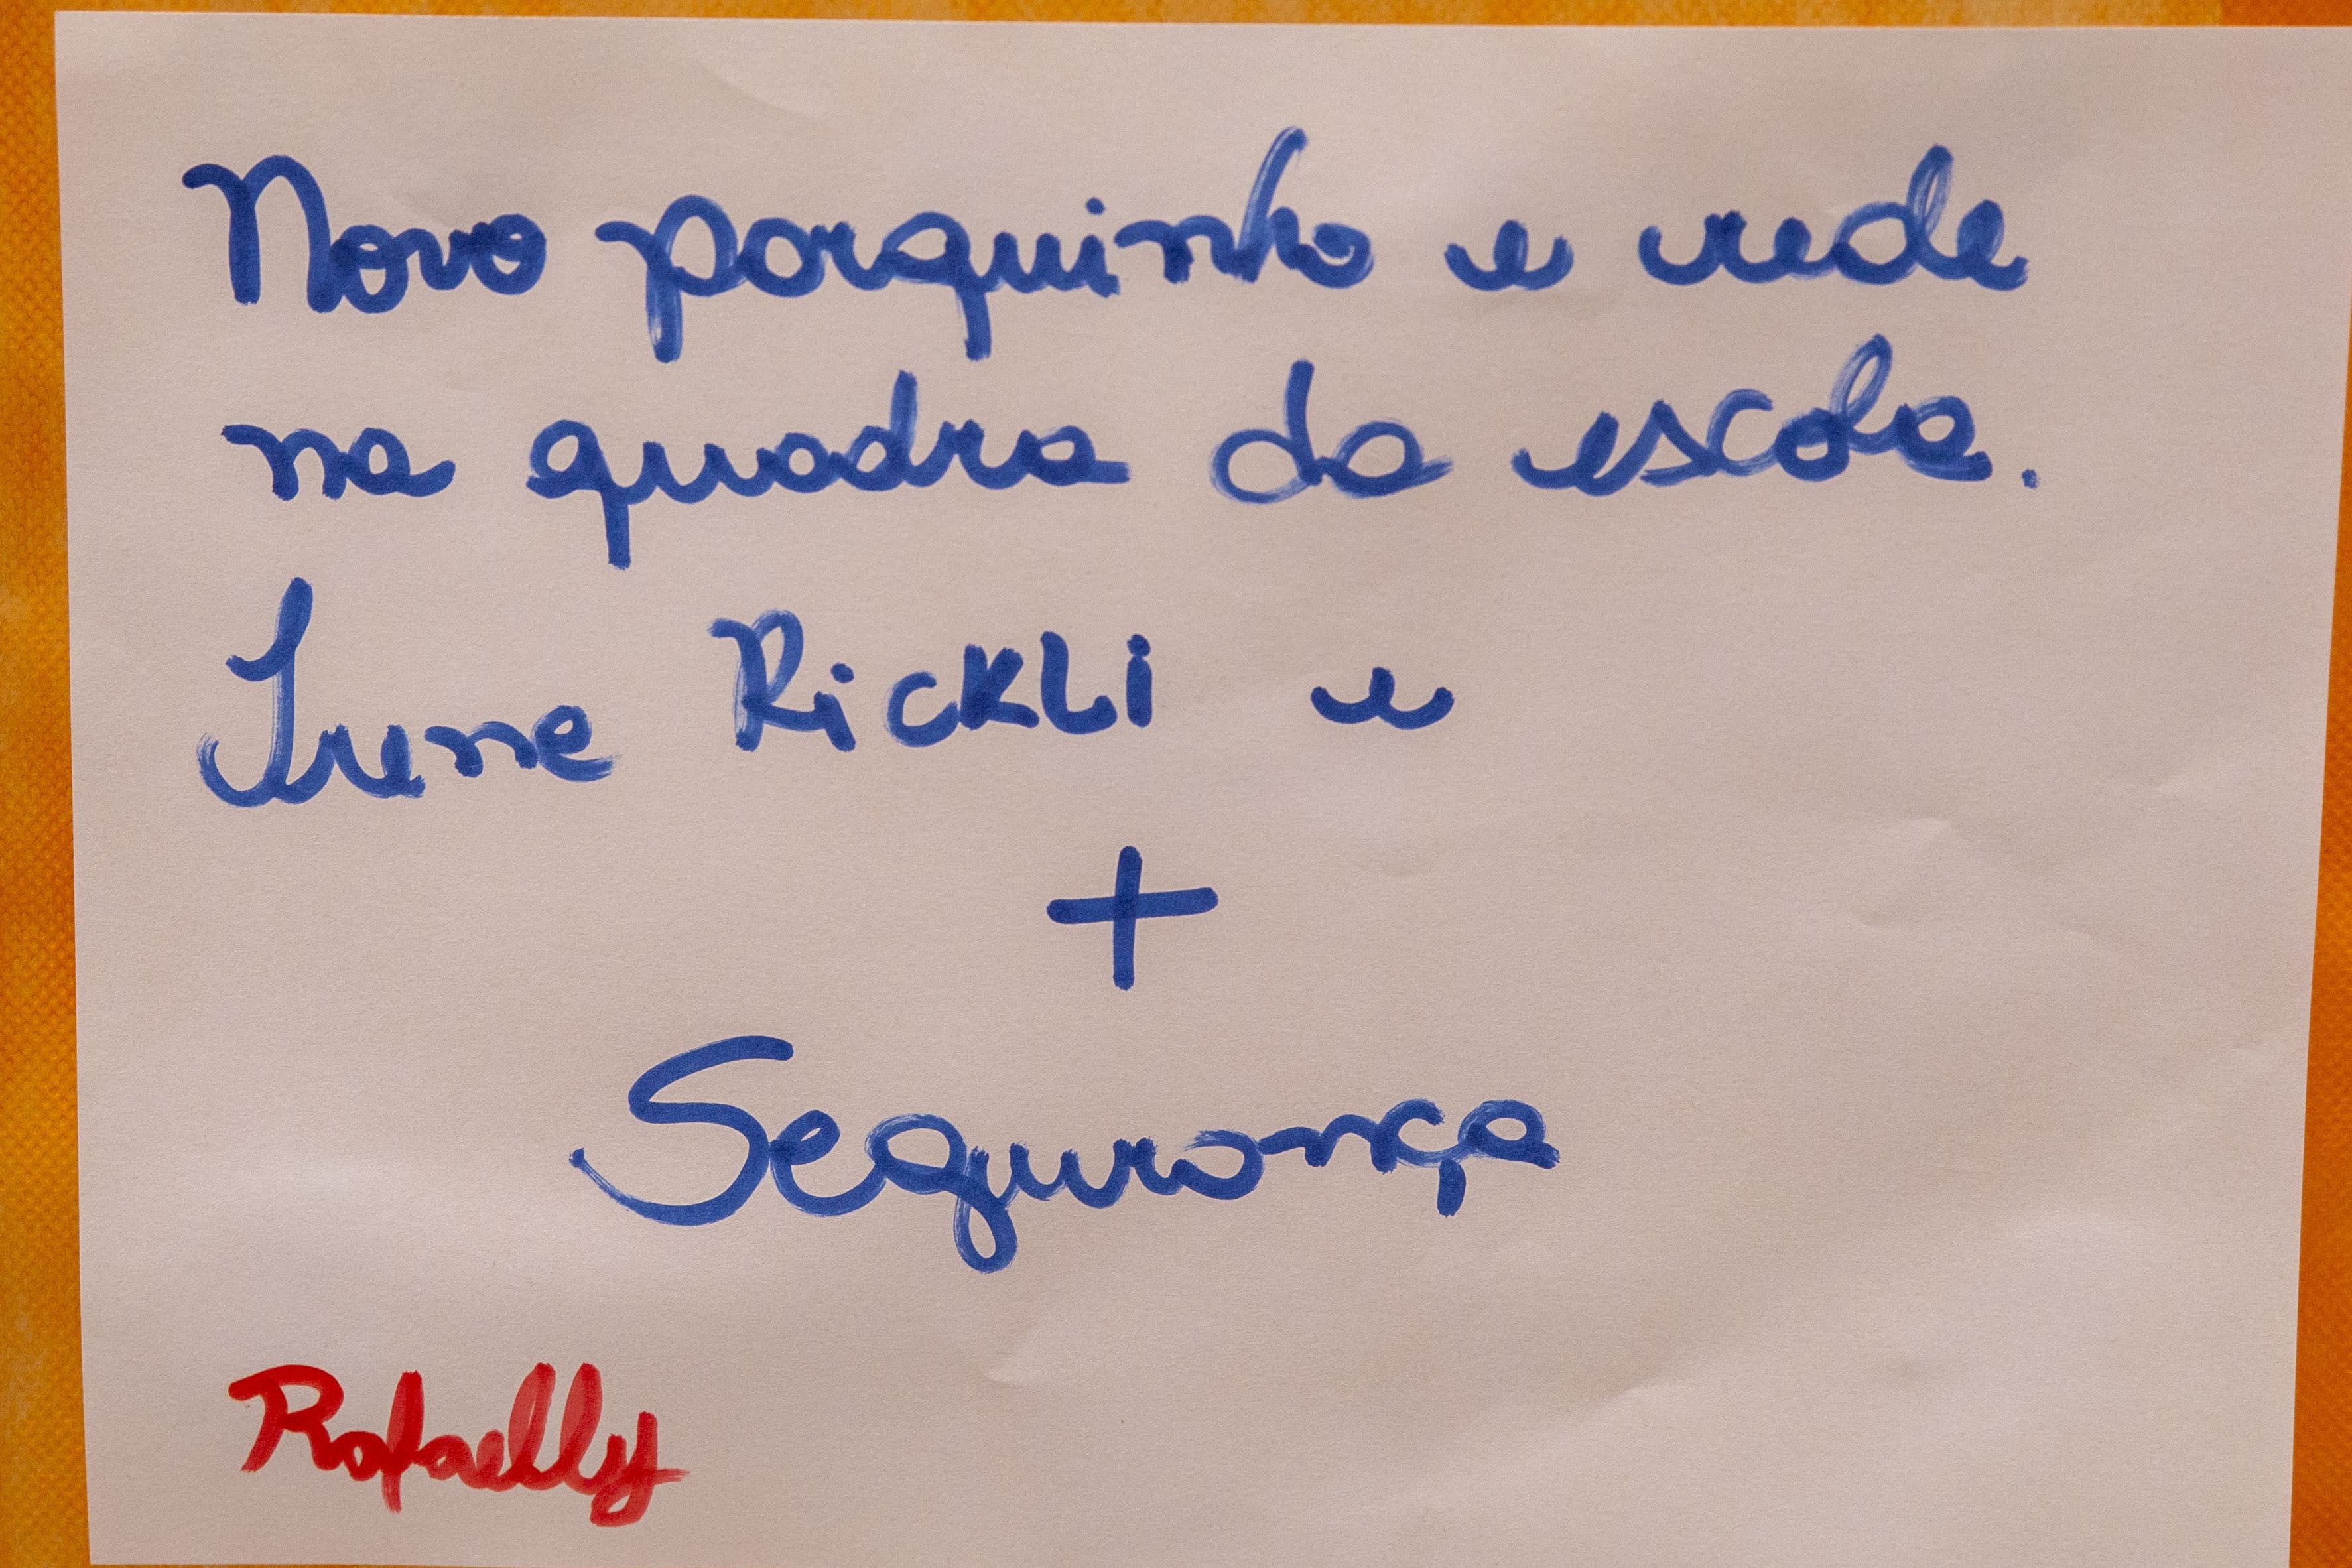 Novo porquinho e rede
na quadra da escola.
Irene Rickli e
+
Segurança
Rafaelly